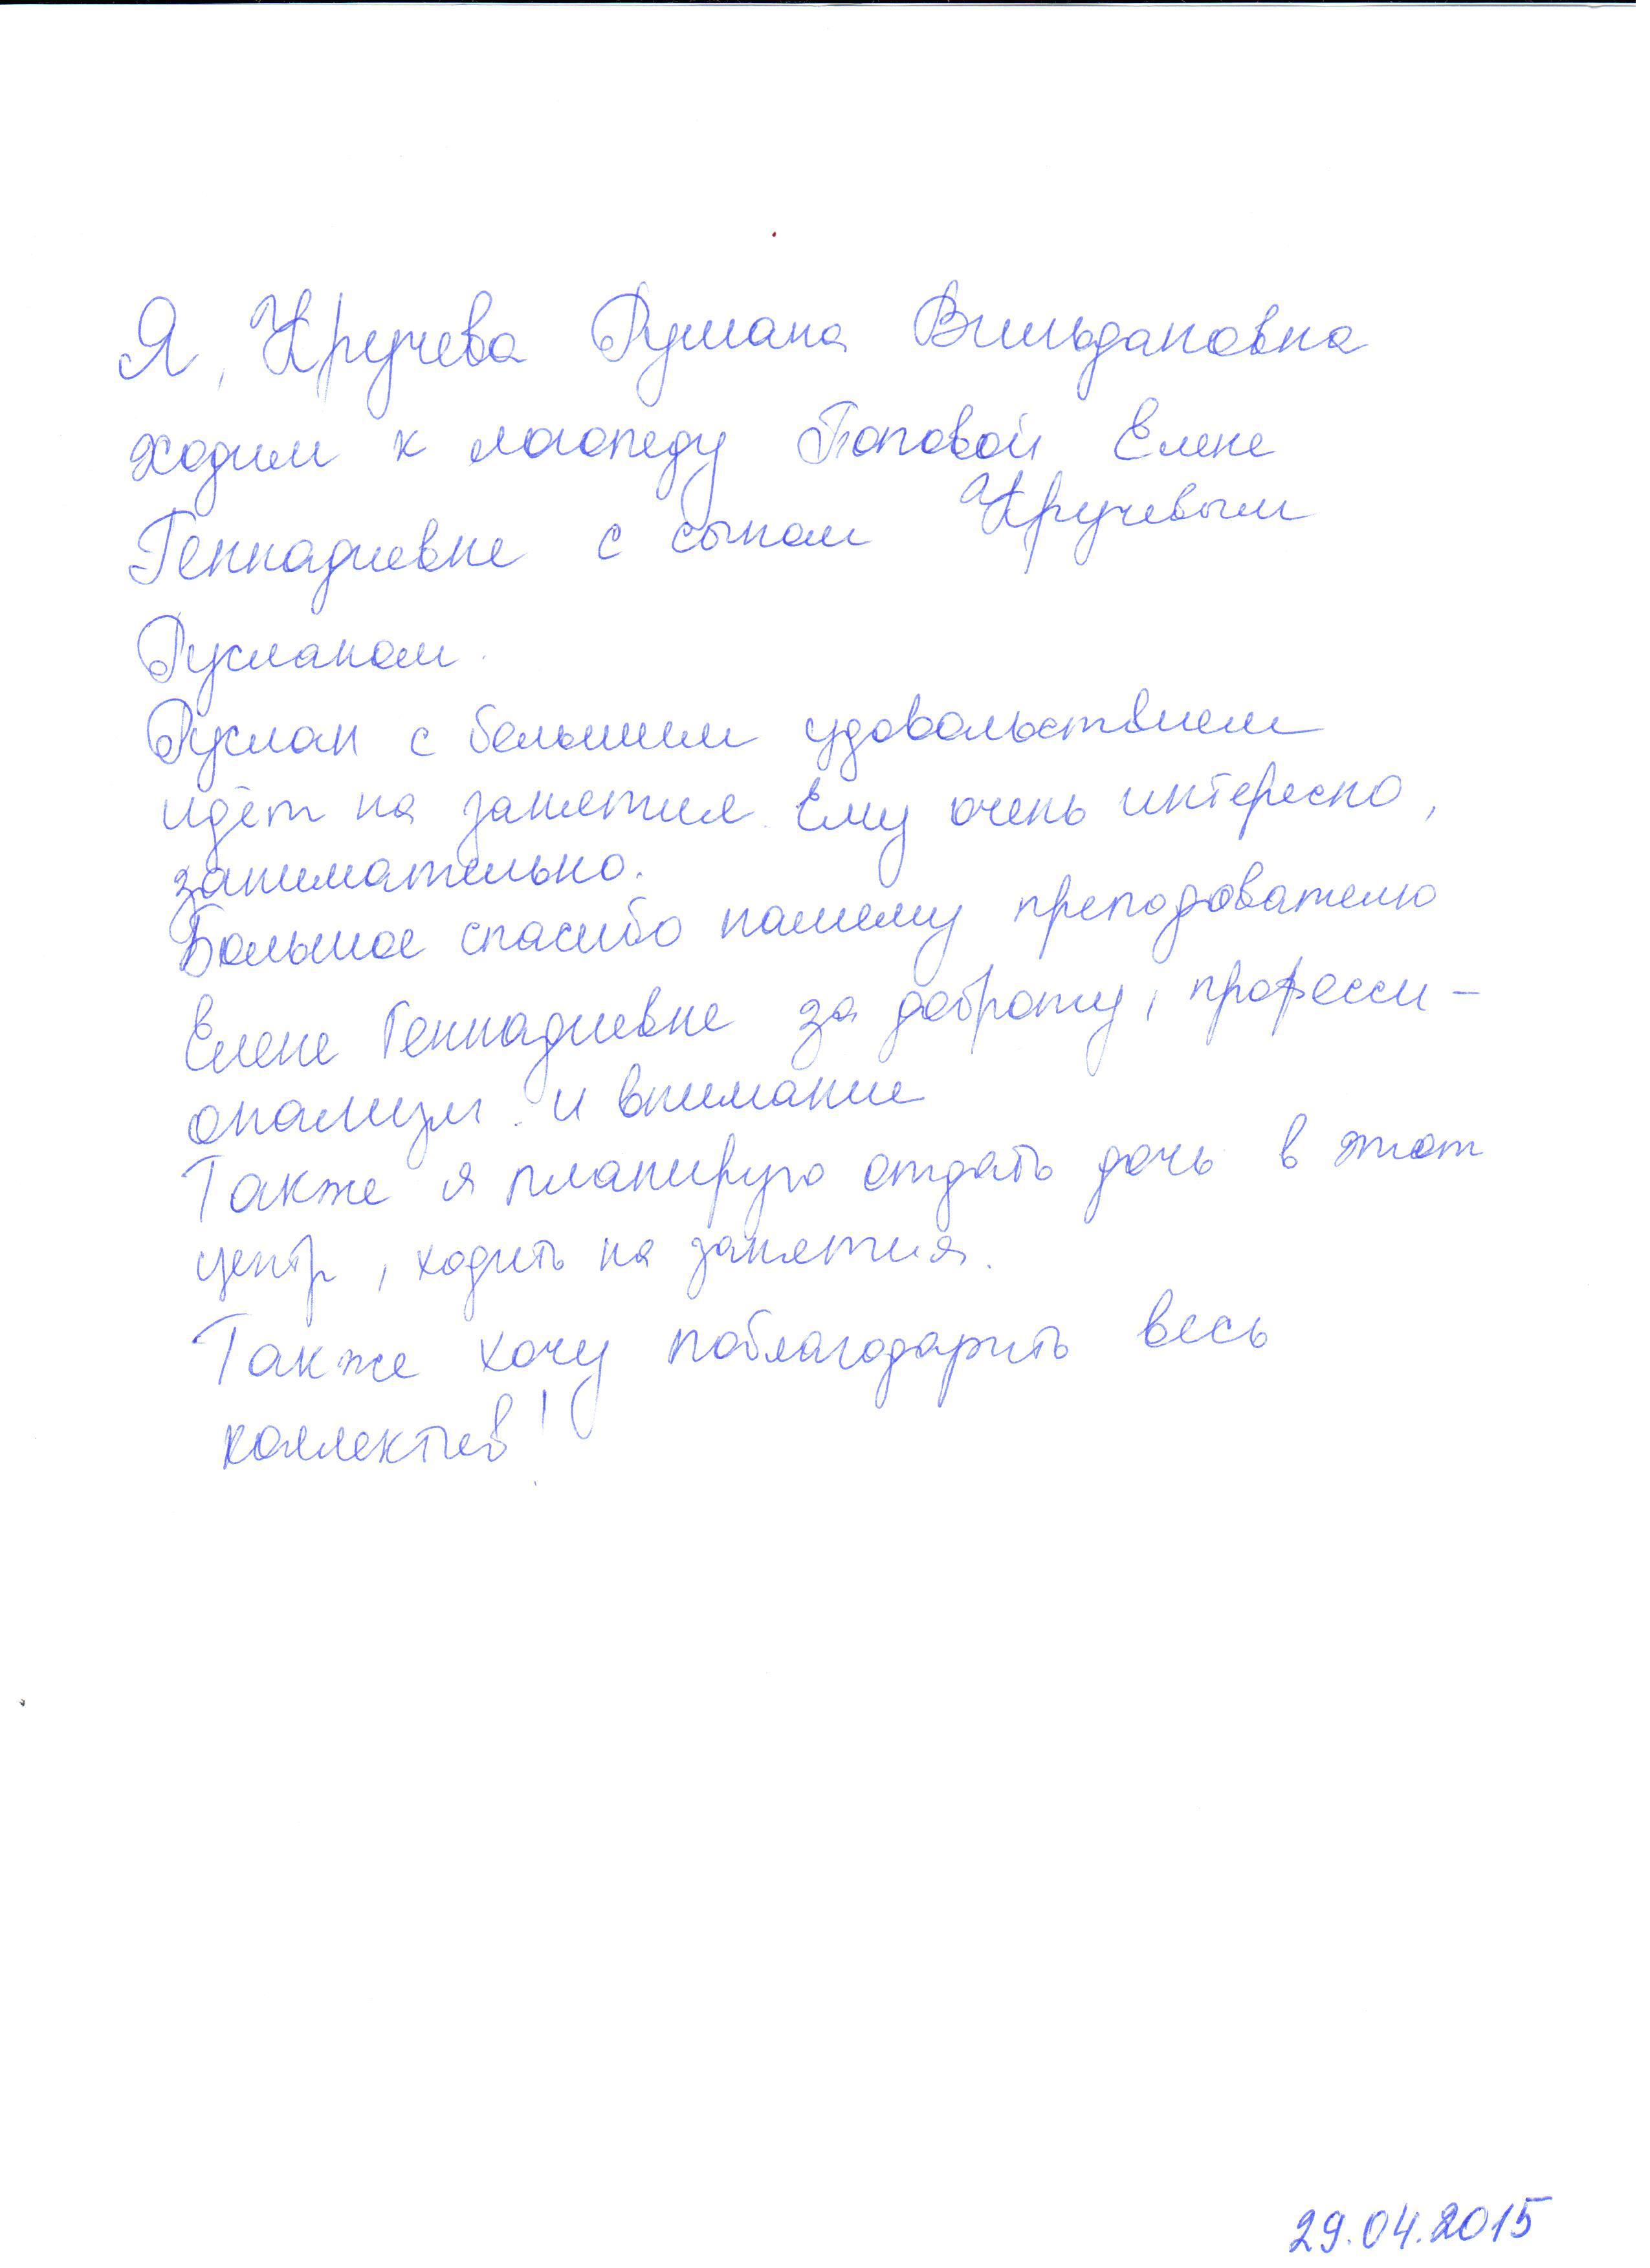 Я, Кручева Румана Вильдановна
ходим к логопеду Поповой Елене
Геннадиевне с сыном Кручевым
Русланом.
Руслан с большим удовольствием
идёт на занятия. Ему очень интересно,
занимательно.
Большое спасибо нашему преподователю
Елене Геннадиевне за доброту, професси-
онализм и внимание
Также я планирую отдать дочь в этот
центр, ходить на занятия.
Также хочу поблагодарить весь
коллектив!
29.04.2015